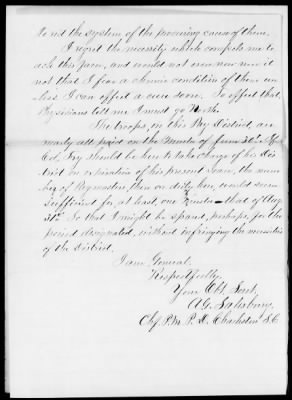 to rid the system of the procuring cause of them.
I regret the necessity which compels me to
ask this favor, and would not even now were it
not that I fear a chronic condition of them un-
less I can effect a cure soon. To effect that
Physicians tell me I must go North.
The troops, in this Pay District, are
nearly all paid on the Muster of June 30th &
Col. Fry should be here to take charge of his Dis-
trict on expiration of his present leave, the num-
ber of Paymasters, then on duty here, would seem
sufficient for, at least, one Muster—that of Aug
31st. So that I might be spared, perhaps, for the
period designated, without infringing the necessities
of the District.
I am General,
Respectfully,
Your Obt Servt,
A.G. Salisbury,
Chf. P.M. P.D. Charleston S.C.